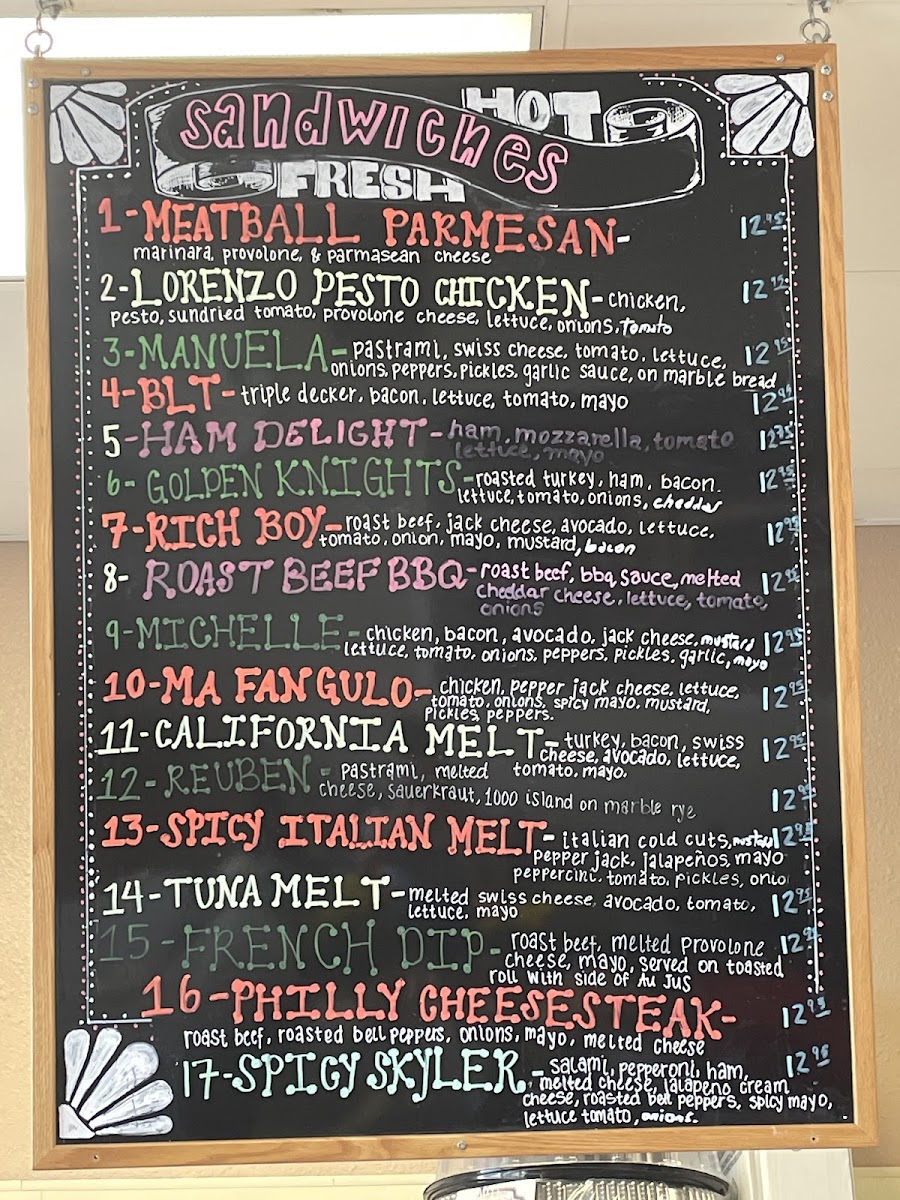 HOT
sandwiches
FRESH
1-MEATBALL PARMESAN- 12.95
marinara, provolone, & parmasean cheese
2-LORENZO PESTO CHICKEN- chicken, 12.95
pesto, sundried tomato, provolone cheese, lettuce, onions, tomato
3-MANUELA- pastrami, swiss cheese, tomato, lettuce, 12.95
onions, peppers, pickles, garlic sauce, on marble bread
4-BLT- triple decker, bacon, lettuce, tomato, mayo 12.95
5-HAM DELIGHT- ham, mozzarella, tomato 12.95
lettuce, mayo
6-GOLDEN KNIGHTS- roasted turkey, ham, bacon. 12.95
lettuce, tomato, onions, cheddar
7-RICH BOY- roast beef, jack cheese, avocado, lettuce, 12.95
tomato, onion, mayo, mustard, bacon
8-ROAST BEEF BBQ- roast beef, bbq sauce, melted 12.95
cheddar cheese, lettuce, tomato,
onions
9-MICHELLE- chicken, bacon, avocado, jack cheese, mustard 12.95
lettuce, tomato, onions, peppers, pickles, garlic, mayo
10-MA FANGULO- chicken, pepper jack cheese, lettuce, 12.95
tomato, onions, spicy mayo, mustard,
pickles, peppers.
11-CALIFORNIA MELT- turkey, bacon, swiss 12.95
cheese, avocado, lettuce,
tomato, mayo.
12-REUBEN- pastrami, melted 12.95
cheese, sauerkraut, 1000 island on marble rye
13-SPICY ITALIAN MELT- italian cold cuts, mustard 12.95
pepper jack, jalapeños, mayo
peppercini, tomato, pickles, onio
14-TUNA MELT- melted swiss cheese, avocado, tomato, 12.95
lettuce, mayo
15-FRENCH DIP- roast beef, melted provolone 12.95
cheese, mayo, served on toasted
roll with side of Au Jus
16-PHILLY CHEESESTEAK- 12.95
roast beef, roasted bell peppers, onions, mayo, melted cheese
17-SPICY SKYLER- salami, pepperoni, ham, 12.95
melted cheese, jalapeno cream
cheese, roasted bell peppers, spicy mayo,
lettuce tomato, onions.